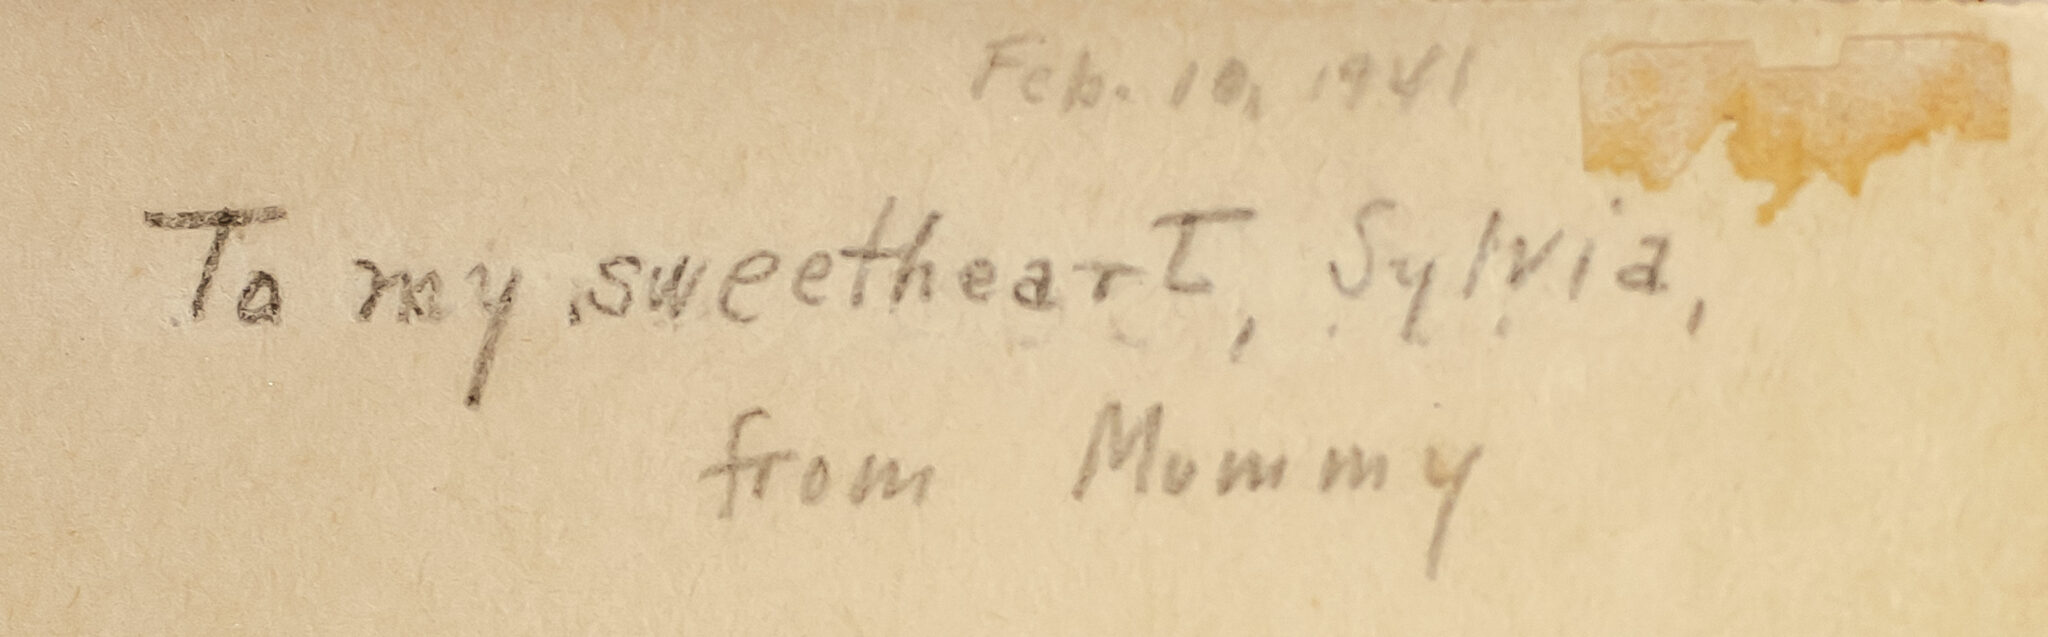 Feb. 10, 1941
To my sweetheart, Sylvia,
from Mummy